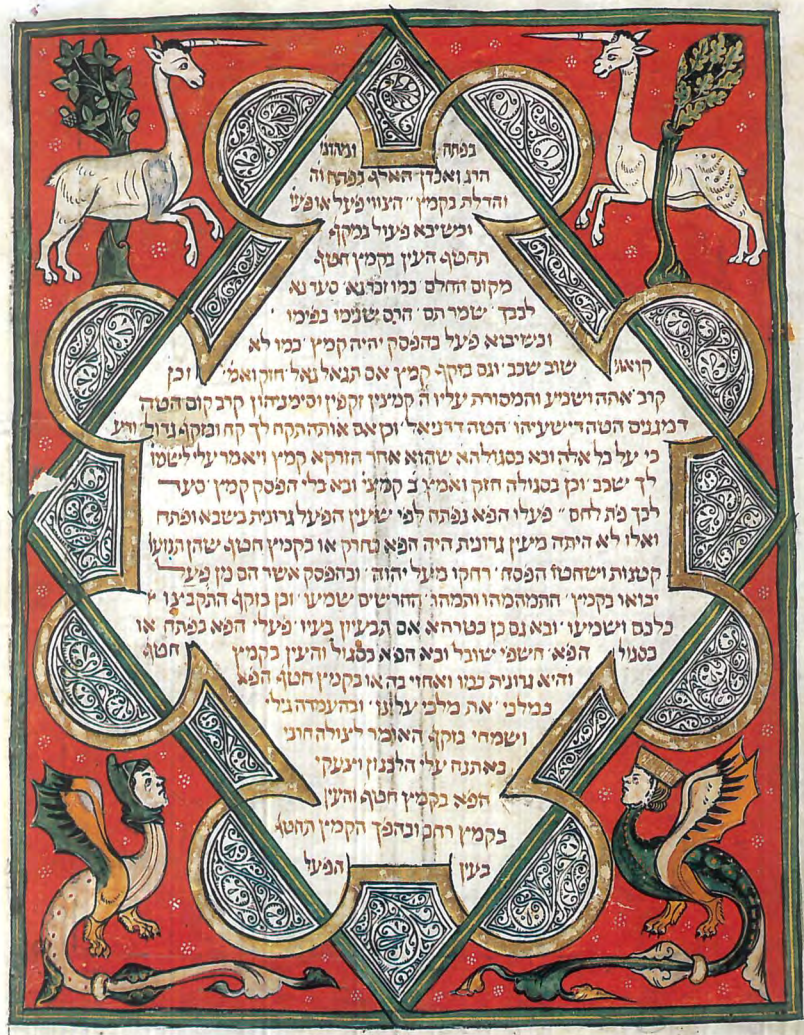 בפתח ומהוני
הרג ואבדן האלף בפתח וה
והדלת בקמץ הצווי פעל או פעו
ובשיבא פעול במקף
תחטף העין בקמץ חטף
מקום החלם כמו זכר נא סעד נא
לבבך שמר תם הרס שנימו בפימו
ובשיבוא פעל בהפסק יהיה קמץ כמו לא
קואו שוב שכב וגם בזקף קמץ אם תגאל גאל חזק ואמץ וכן
קרב אתה ושמע והמסורת עליו ה קמיצין זקפין וסימניהון קרב קום הטה
דמגנים הטה דישעיהו הטה דדניאל וכן אם אותה תקח לך קח ובזקף גדול ודע
כי על כל אלה ובא בסגולתא שהוא אחר הזרקא קמץ ויאמר עלי לשמו
לך שכב וכן בסגולה חזק ואמץ ב קמצי ובא בלי הפסק קמץ סעד
לבך פת לחם פעלו הפא נפתח לפי שעין הפעל גרונית בשבא ופתח
ואלו לא היתה מעין גרונית היה הפא בחרק או בקמץ חטף שהן תנועו
קטנות ושחטו הפסח רחקו מעל יהוה ובהפסק אשר הם מן פעל
יבואו בקמץ התמהמהו ותמהו החרשים שמעו וכן בזקף התקבצו
כלכם ושמעו ובא גם כן בטרחא אם תבעיון בעיו פעלי הפא בפתח או
בסגול הפא חשפי שובל ובא הפא בסגול והעין בקמץ חטף
והיא גרונית כמו ואחזי בה או בקמץ חטף הפא
כמלכי את מלכי עלינו ובהעמדה גילי
ושמחי בזקף האומר לצולה חרבי
באתנח עלי הלבנון וצעקי
הפא בקמץ חטף והעין
בקמץ רחב ובהפך הקמץ תחטף
בעין הפעל